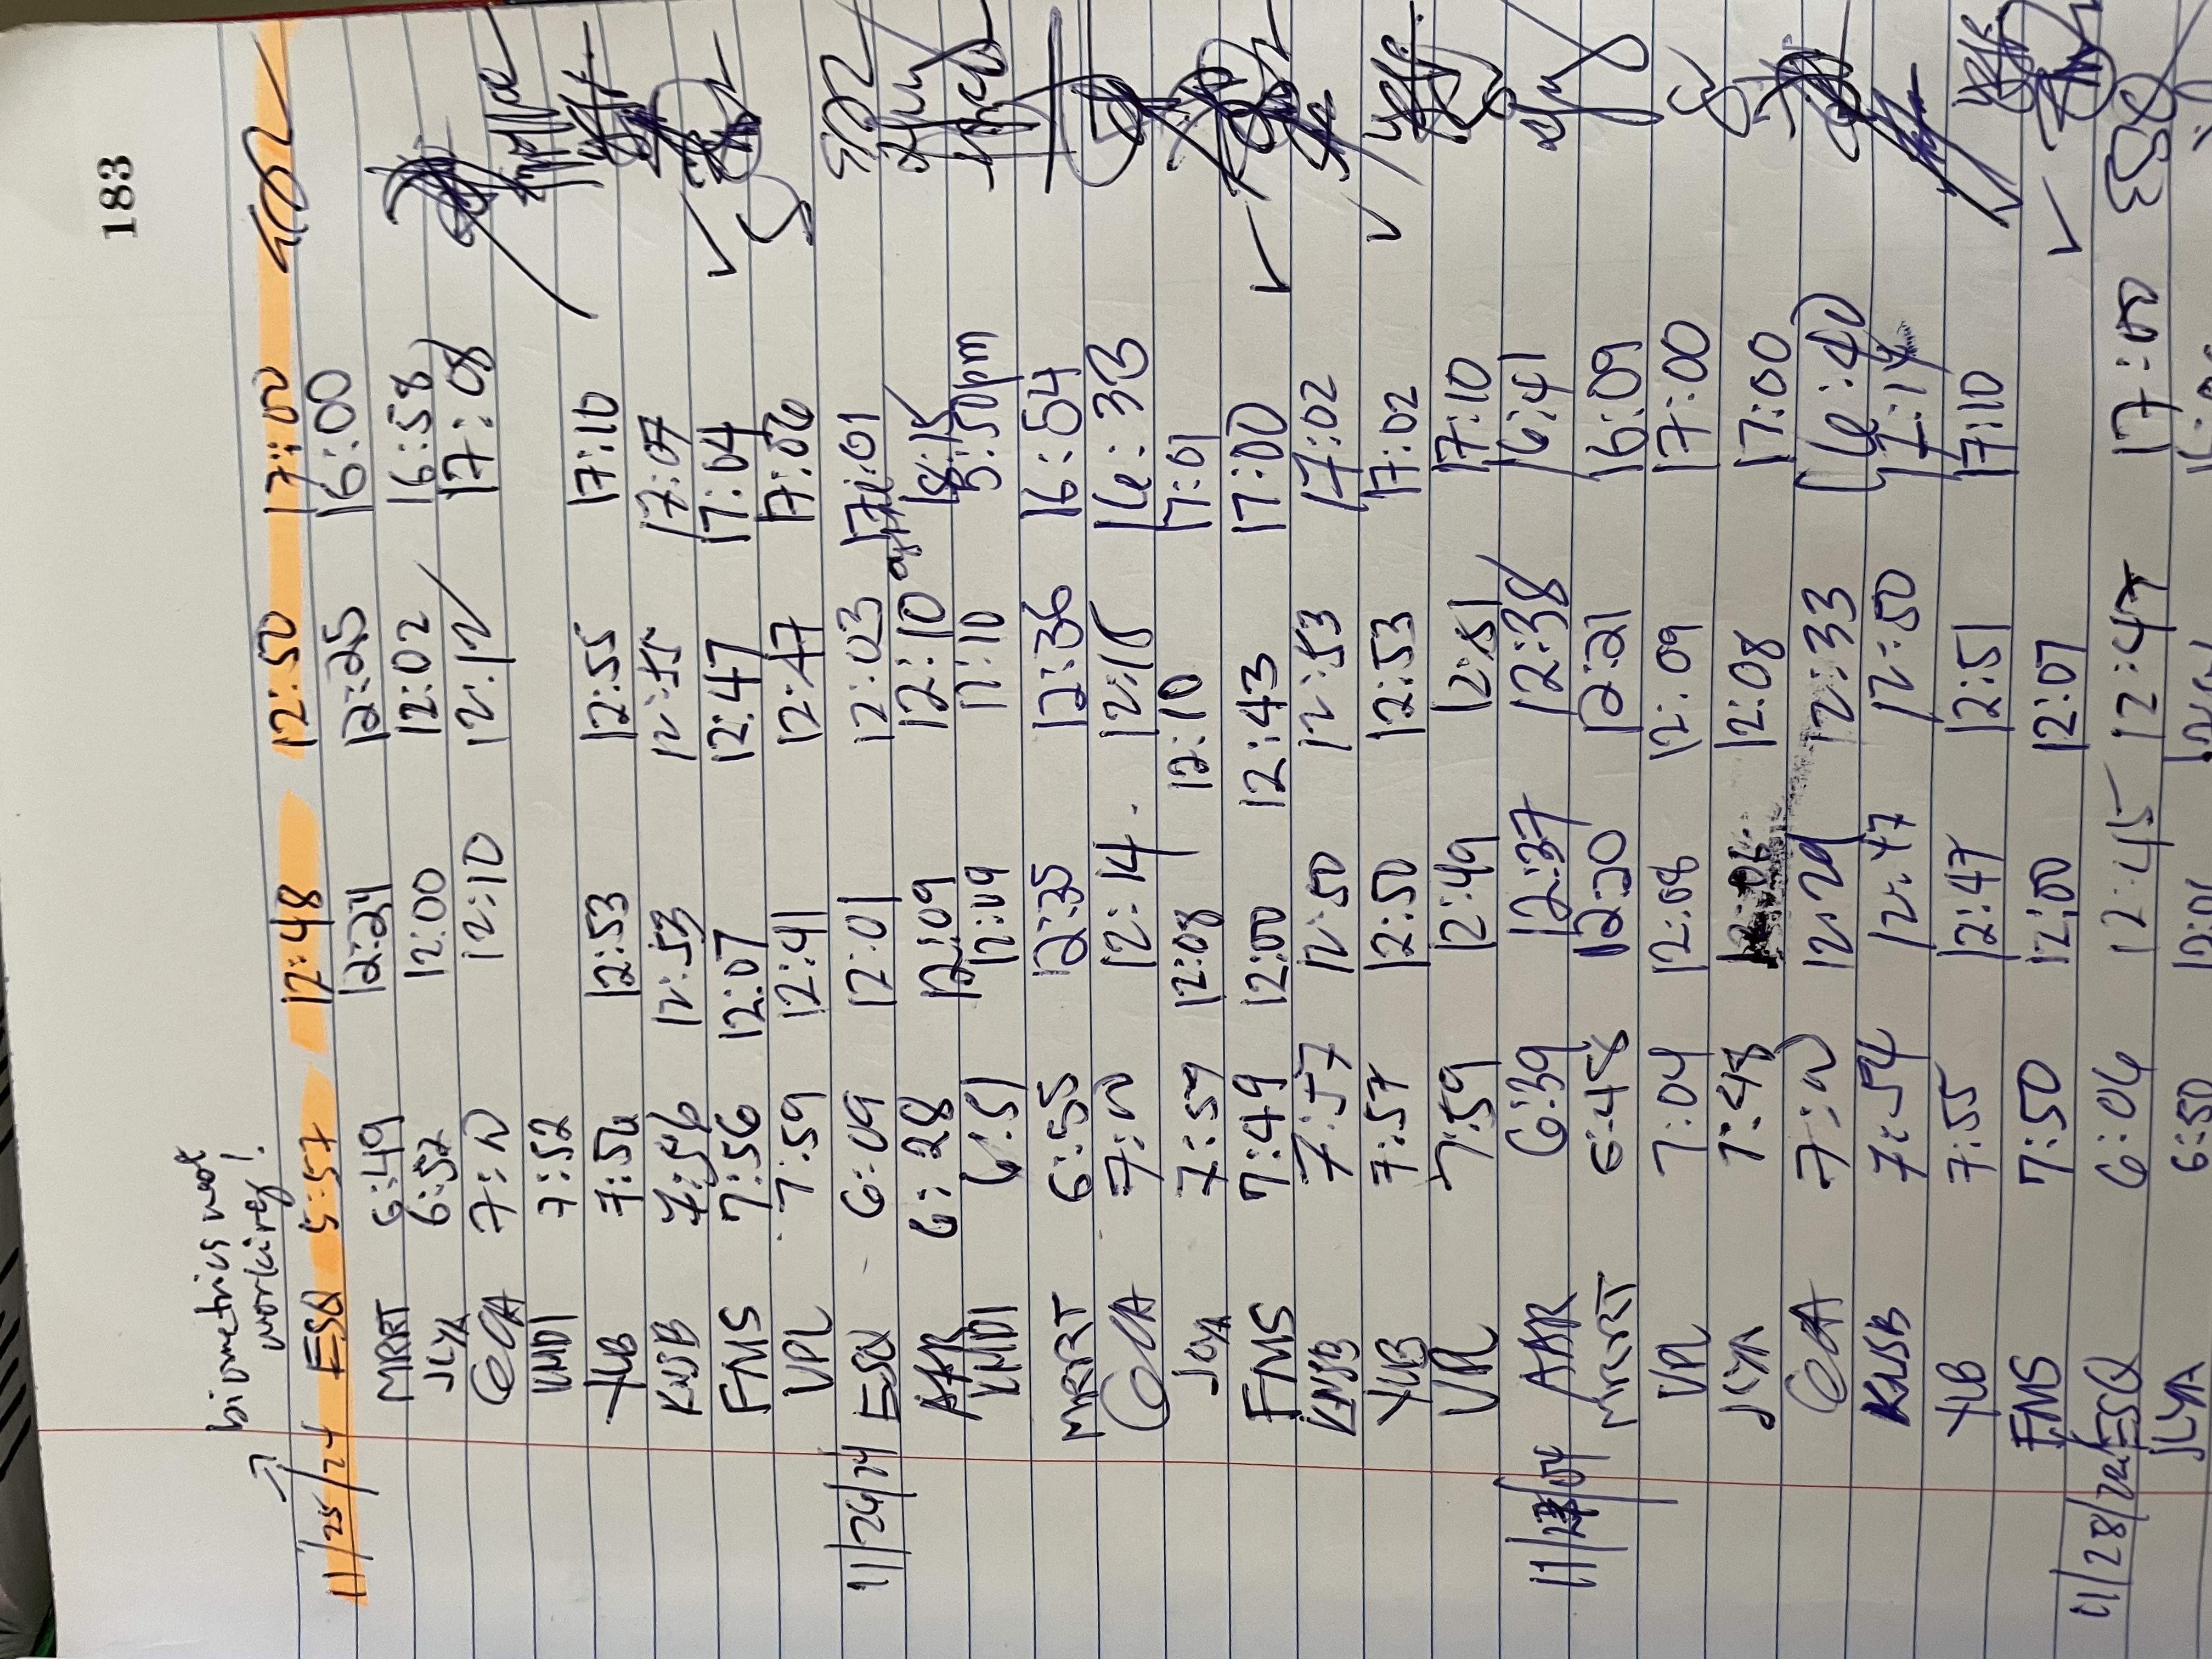 183
biometrics not
working!
11/25/24 ESQ 5:57 12:48 12:50 17:00
MRRT 6:49 12:24 12:25 16:00
JLYA 6:52 12:00 12:02 16:58
GCA 12:10 12:12 17:08
KMDI 7:52
YLB 7:56 12:53 12:55 17:10
KNSB 7:56 12:53 12:55 17:07
FMS 7:56 12:07 12:47 17:04
VPL 7:59 12:41 12:47 17:06
11/26/24 ESQ 6:09 12:01 12:03 17:01
AAR 6:28 12:09 12:10
KMDI 6:51 12:09 12:10 5:50pm
MRRT 6:55 12:35 12:36 16:54
GCA 12:14 16:33
JLYA 7:59 12:08 12:10 17:01
FMS 7:49 12:00 12:43 17:00
KNSB 7:57 12:50 12:53 17:02
YLB 7:57 12:50 12:53 17:02
VPL 7:59 12:49 12:51 17:10
AAR 6:39 12:37 12:38 16:41
MRRT 6:48 12:20 12:21 16:09
VPL 7:04 12:08 12:09 17:00
JLYA 7:48 12:06 12:08 17:00
GCA 12:29 12:33 16:40
KNSB 7:54 12:47 12:50 17:14
YLB 7:55 12:47 12:51 17:10
FMS 7:50 12:00 12:07
11/28/24 ESQ 6:06 12:45 12:47 17:00 ESQ
JLYA 6:50 12:01